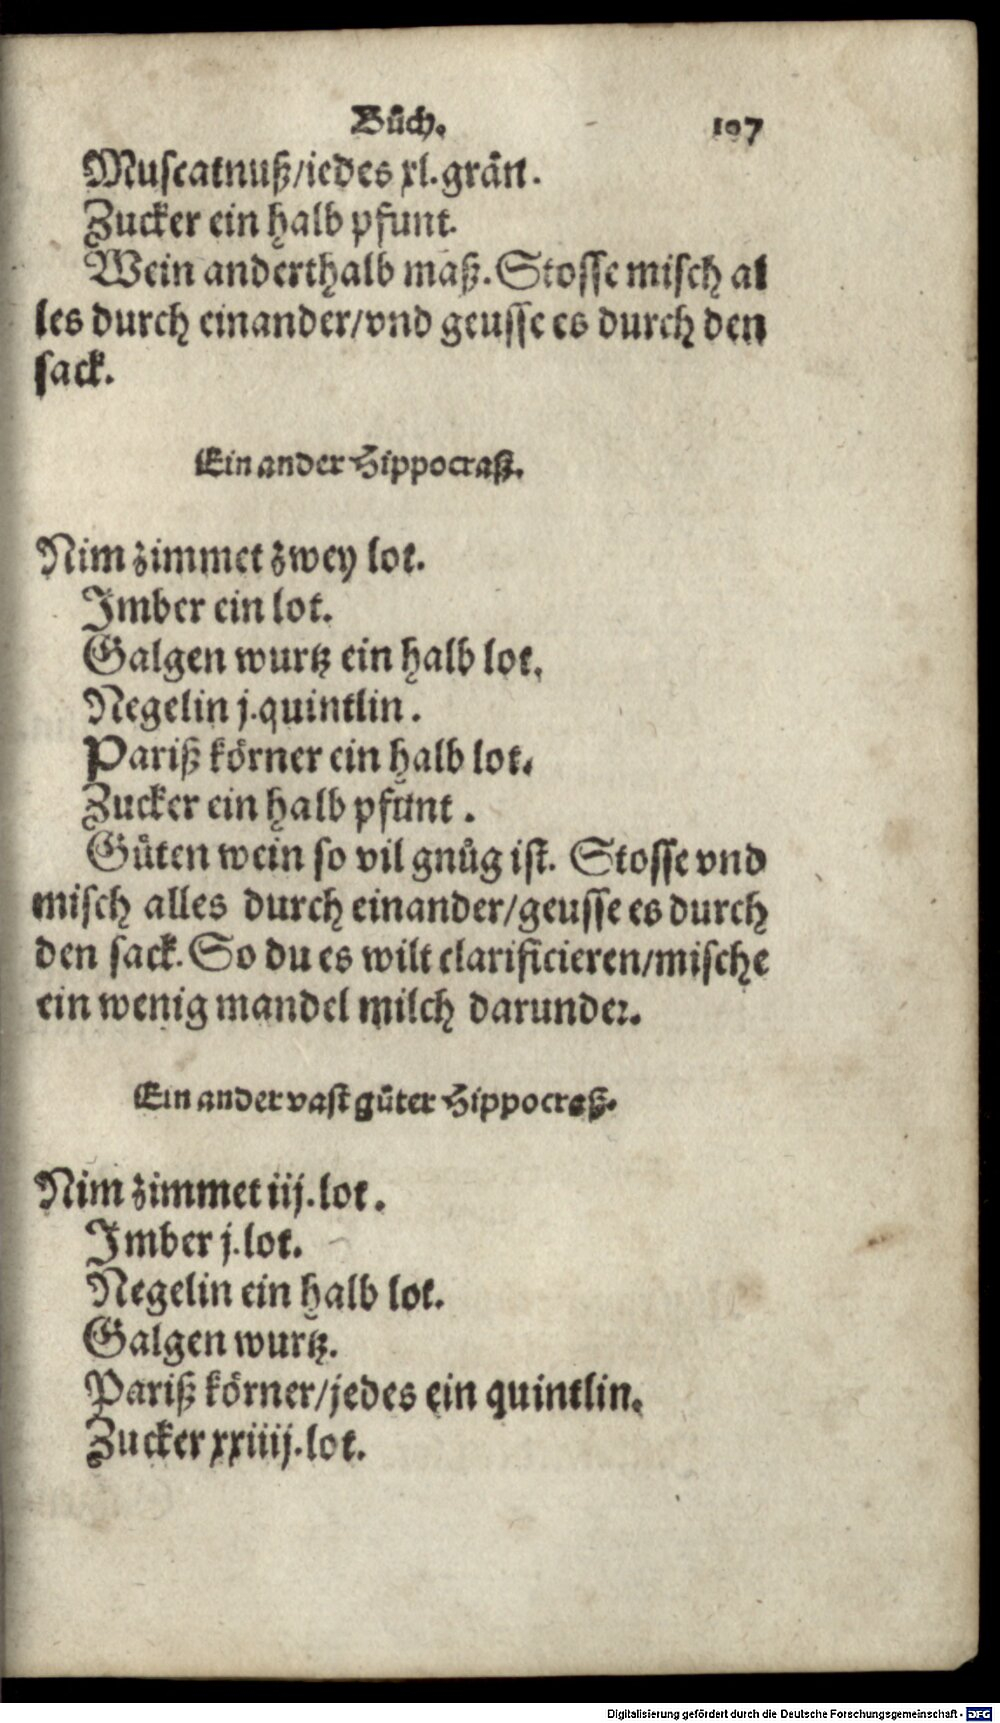 Bůch. 107
Muscatnuß/iedes xl. grän.
Zucker ein halb pfunt.
Wein anderthalb maß. Stosse misch al
les durch einander/vnd geusse es durch den
sack.
Ein ander Hippocraß.
Nim zimmet zwey lot.
Imber ein lot.
Galgen wurtz ein halb lot.
Negelin j. quintlin.
Pariß körner ein halb lot.
Zucker ein halb pfunt.
Gůten wein so vil gnůg ist. Stosse vnd
misch alles durch einander/geusse es durch
den sack. So du es wilt clarificieren/mische
ein wenig mandel milch darunder.
Ein ander vast gůter Hippocraß.
Nim zimmet iij. lot.
Imber j. lot.
Negelin ein halb lot.
Galgen wurtz.
Pariß körner/jedes ein quintlin.
Zucker xxiiij. lot.
Digitalisierung gefördert durch die Deutsche Forschungsgemeinschaft - DFG